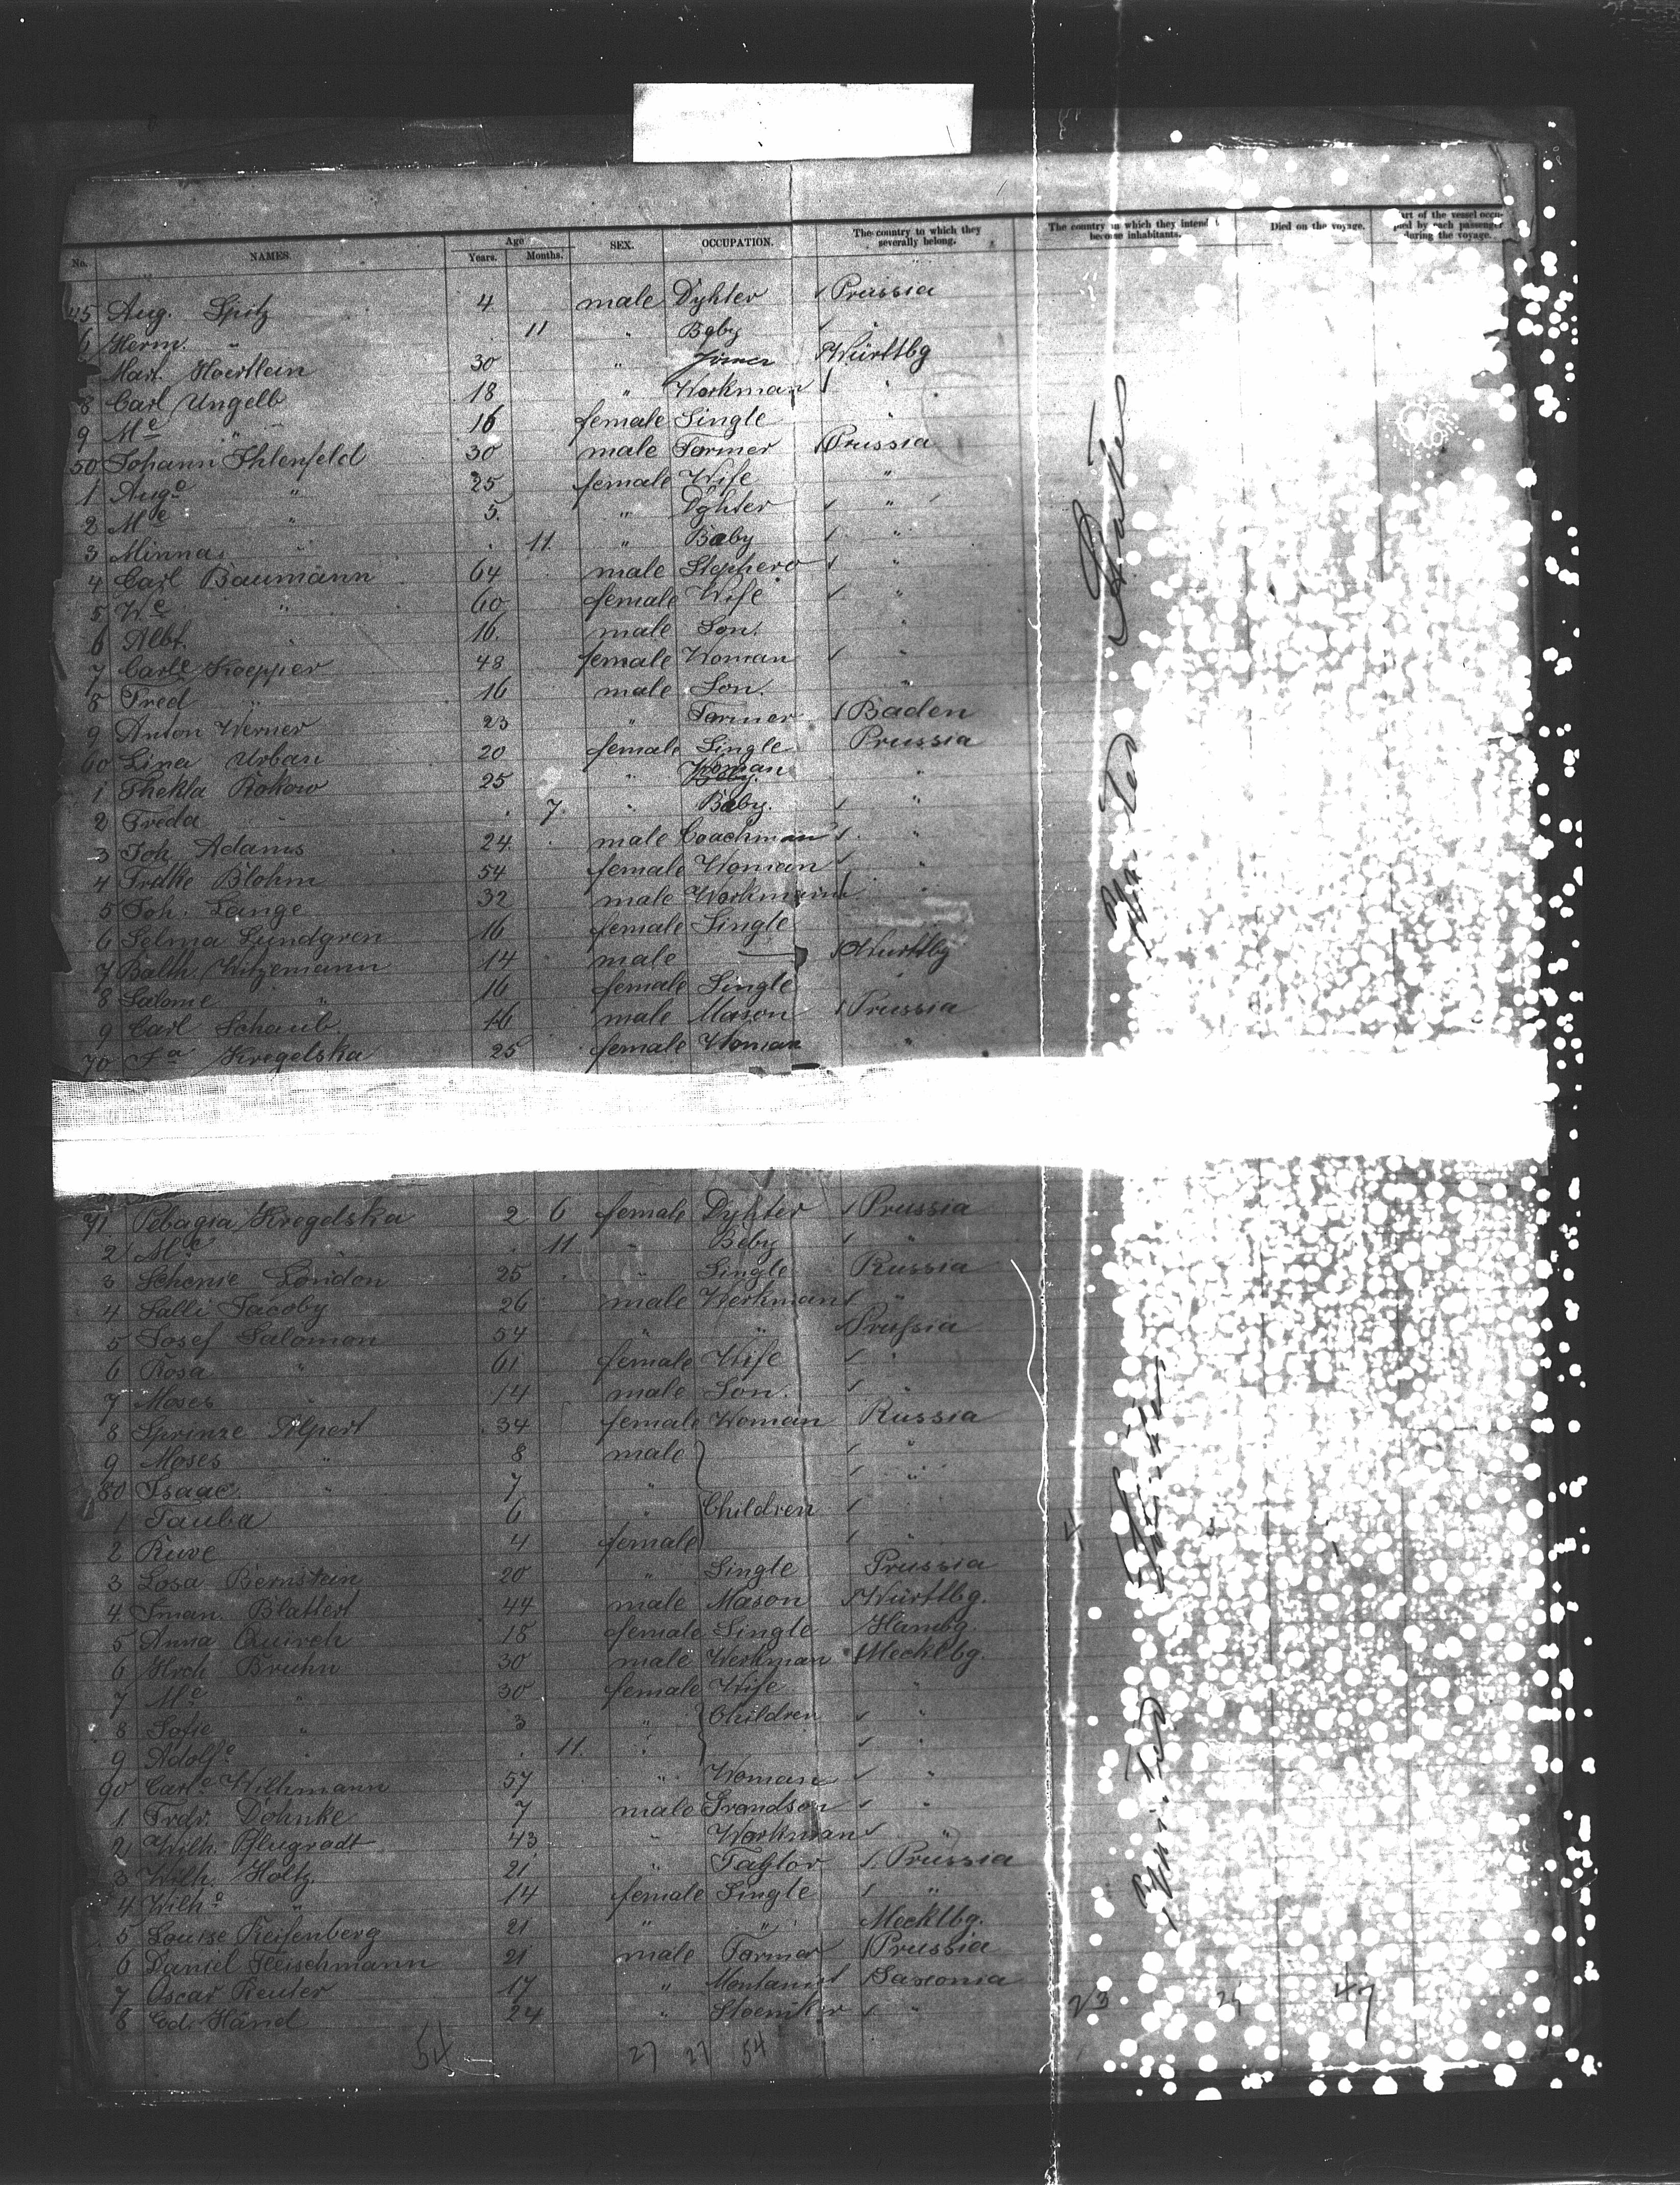 No. NAMES. Age Years. Months. SEX. OCCUPATION. The country to which they severally belong. The country to which they intend t become inhabitants. Died on the voyage. art of the vessel occu- pied by each passenger during the voyage.
45 Aug. Spitz 4 male Dghter Prussia
6 Herm. " 11 " Baby
Mart. Hoertlein 30 " Württbg
8 Carl Ungelb 18 " Workman "
9 Me " 16 female Single "
50 Johann Ihlenfeld 30 male Farmer Prussia
1 Auge " 25 female Wife "
2 Me " 5 " Dghter "
3 Minna " 11 " Baby "
4 Carl Baumann 64 male Shephero "
5 We " 60 female Wife "
6 Albt. " 16 male Son. "
7 Carle Koepper 48 female Woman "
8 Fred " 16 male Son. "
9 Anton Werner 23 " Farmer Baden
60 Lina Urban 20 female Single Prussia
1 Thekla Rokow 25 " Woman "
2 Freda " 7 " Baby. "
3 Joh. Adams 24 male Coachman "
4 Frdke Blohm 54 female Woman "
5 Joh. Lange 32 male Workmann "
6 Selma Lundgren 16 female Single "
7 Balth. Witzemann 14 male — Württbg
8 Salome " 16 female Single
9 Carl Schaub 46 male Mason Prussia
70 Fa Kregelska 25 female Woman "
71. Pelagia Kregelska 2 6 female Dghter Prussia
2 Me " 11 " Beby "
3 Schenie London 25 " Single Russia
4 Salli Jacoby 26 male Workman "
5 Josef Salomon 54 " " Prussia
6 Rosa " 61 female Wife "
7 Moses " 14 male Son. "
8 Sprinze Alpert 34 female Woman Russia
9 Moses " 8 male "
80 Isaac " 7 " "
1 Tauba 6 " Children "
2 Ruve 4 female "
3 Losa Bernstein 20 " Single Prussia
4 Iman. Blattert 44 male Mason Württbg.
5 Anna Quirch 18 female Single Hambg.
6 Hrch Bruhn 30 male Workman Mecklbg.
7 Me " 30 female Wife "
8 Sofie " 3 " Children "
9 Adolfe " 11. " "
90 Carle Wilhmann 57 " Woman "
1 Frdr. Dohnke 7 male Grandson "
2 Wilh. Pflugradt 43 " Workman "
3 Wilh. Holtz. 21 " Taylor Prussia
4 Wilhe " 14 female Single "
5 Louise Reifenberg 21 " " Mecklbg.
6 Daniel Fleischmann 21 male Farmer Prussia
7 Oscar Reuter 17 " Saxonia
8 Ed. Händ 24 " "
23 24 47
54 27 27 54
States
United
States
United